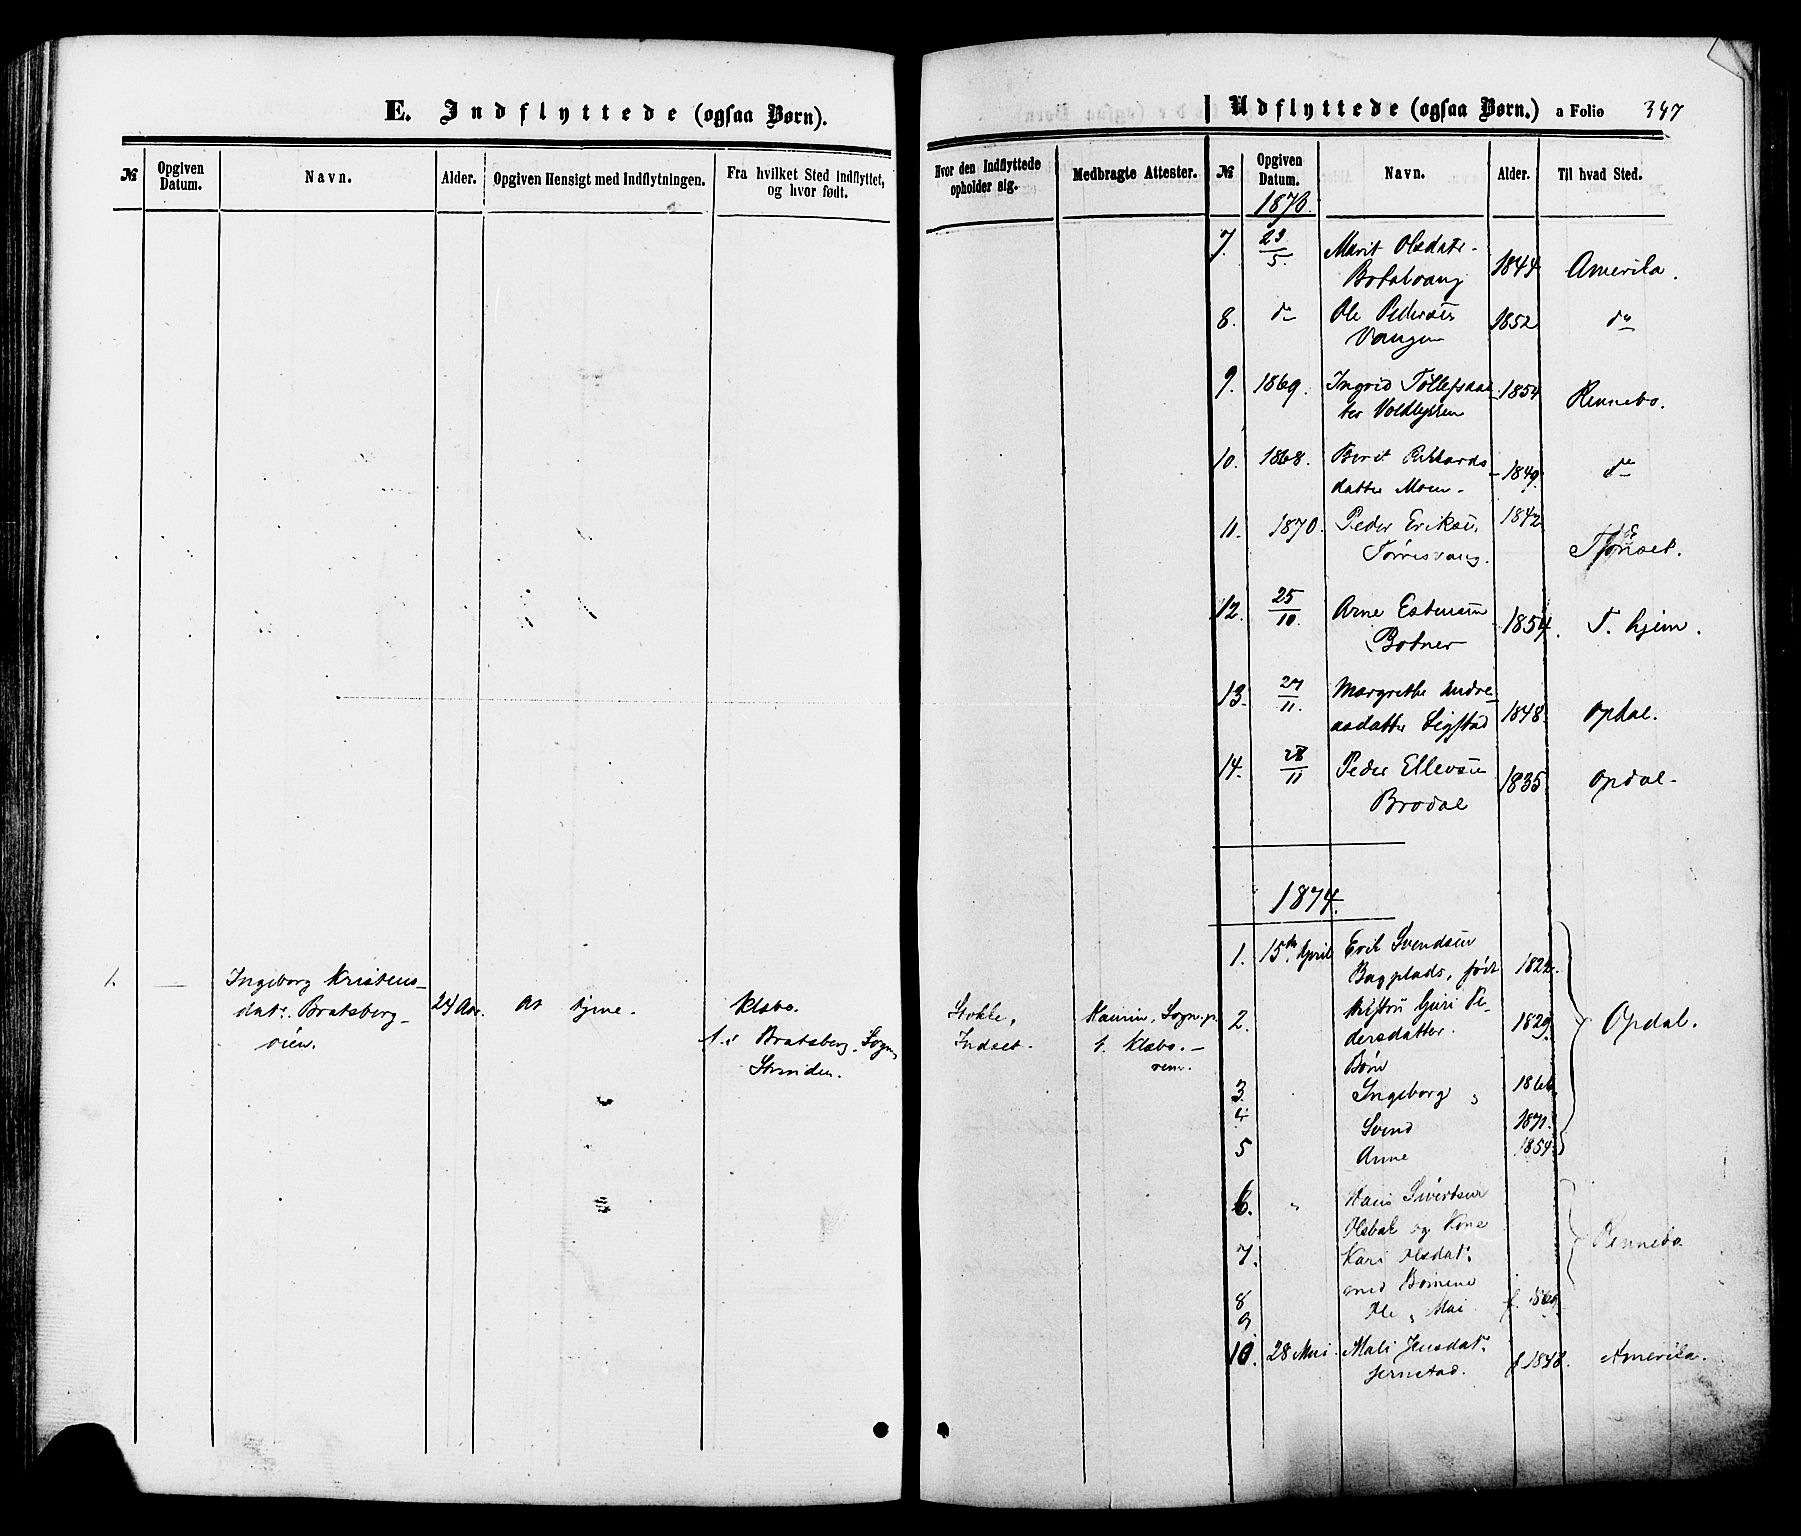 E. Indflyttede (ogsaa Børn).
№
Opgiven Datum.
Navn.
Alder.
Opgiven Hensigt med Indflytningen.
Fra hvilket Sted indflyttet, og hvor født.
1. — Ingeborg Kristens-
datr. Bratsberg-
øien.
24 Aar.
At tjene.
Klæbo.
f. i Bratsberg, Sogn
Strinden.
Udflyttede (ogsaa Børn.) a Folio 347
Hvor den Indflyttede opholder sig.
Medbragte Attester.
№
Opgiven Datum.
Navn.
Alder.
Til hvad Sted.
Stokke,
Indset.
Kaurin, Sogn.p.
t. Klæbo.—
1873.
7. 23/5. Marit Olsdatr.
1844. Amerika.
8. do Ole Pedersen
Vangen 1852 do
9. 1869. Ingrid Tollefsdat-
ter Voldløkken 1854 Rennebo.
10. 1868. Berit Rikkards
datter Moen. 1849. do
11. 1870. Peder Eriksen
Tørresvang. 1842 Tønset.
12. 25/10. Arne Estensen
Botner 1854. T. hjem.
13. 27/11. Margrethe Andre-
asdatter Sigstad 1848. Opdal.
14. 28/11 Peder Ellevsen
Brodal 1835. Opdal.
1874.
1. 15de April Erik Svendsen
Bagplads, født 1822.
2. Hustru Guri Pe-
dersdatter. 1829. Opdal.
Børn
3. Ingeborg "
4 Svend 1871.
5 Anne 1854.
6. " Hans Sivertsen
og Kone Rennebo
7. Kari Olsdatr.
med Børnene
8
9 Ole " Mari f.
10. 28 Mai. Mali Jensdatr.
f 1848. Amerika.